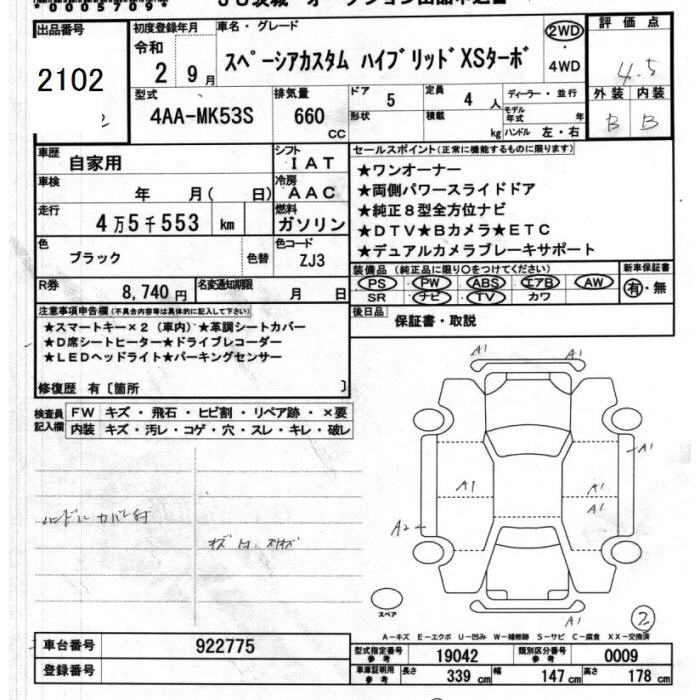 出品番号
2102
初度登録年月
令和
2 9月
車名・グレード
スペーシアカスタム ハイブリッドXSターボ
2WD
4WD
評価点
4.5
外装 内装
B B
型式
4AA-MK53S
排気量
660 CC
ドア 5
形状
定員 4 人
積載 kg
ディーラー・並行
モデル年式 年
ハンドル 左・右
車歴
自家用
シフト
IAT
車検
年 月( 日)
冷房
AAC
走行
4万5千553 km
燃料
ガソリン
色
ブラック
色替
色コード
ZJ3
R券
8,740円
名変通知期限
月 日
セールスポイント(正常に機能するものに限ります)
★ワンオーナー
★両側パワースライドドア
★純正8型全方位ナビ
★DTV★Bカメラ★ETC
★デュアルカメラブレーキサポート
装備品 (純正品に限り○をつけてください)
PS PW ABS エアB AW
SR ナビ TV カワ
新車保証書
有・無
後日品
保証書・取説
注意事項申告欄(不具合内容等は具体的に記入して下さい)
★スマートキー×2(車内)★革調シートカバー
★D席シートヒーター★ドライブレコーダー
★LEDヘッドライト★パーキングセンサー
修復歴 有〔箇所 〕
検査員記入欄
FW キズ・飛石・ヒビ割・リペア跡・×要
内装 キズ・汚レ・コゲ・穴・スレ・キレ・破レ
ハンドルカバー付
A1 A1
A1
A1
A1
A1
A2
A1
スペア
2
A-キズ E-エクボ U-凹み W-補修跡 S-サビ C-腐食 XX-交換済
車台番号
922775
登録番号
型式指定番号 参考
19042
類別区分番号 参考
0009
車庫証明用 参考
長さ 339 cm 幅 147 cm 高さ 178 cm